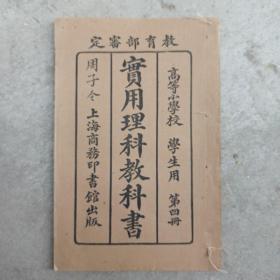 教育部審定
高等小學校　學生用　第四冊
實用理科教科書
周子令　上海商務印書館出版